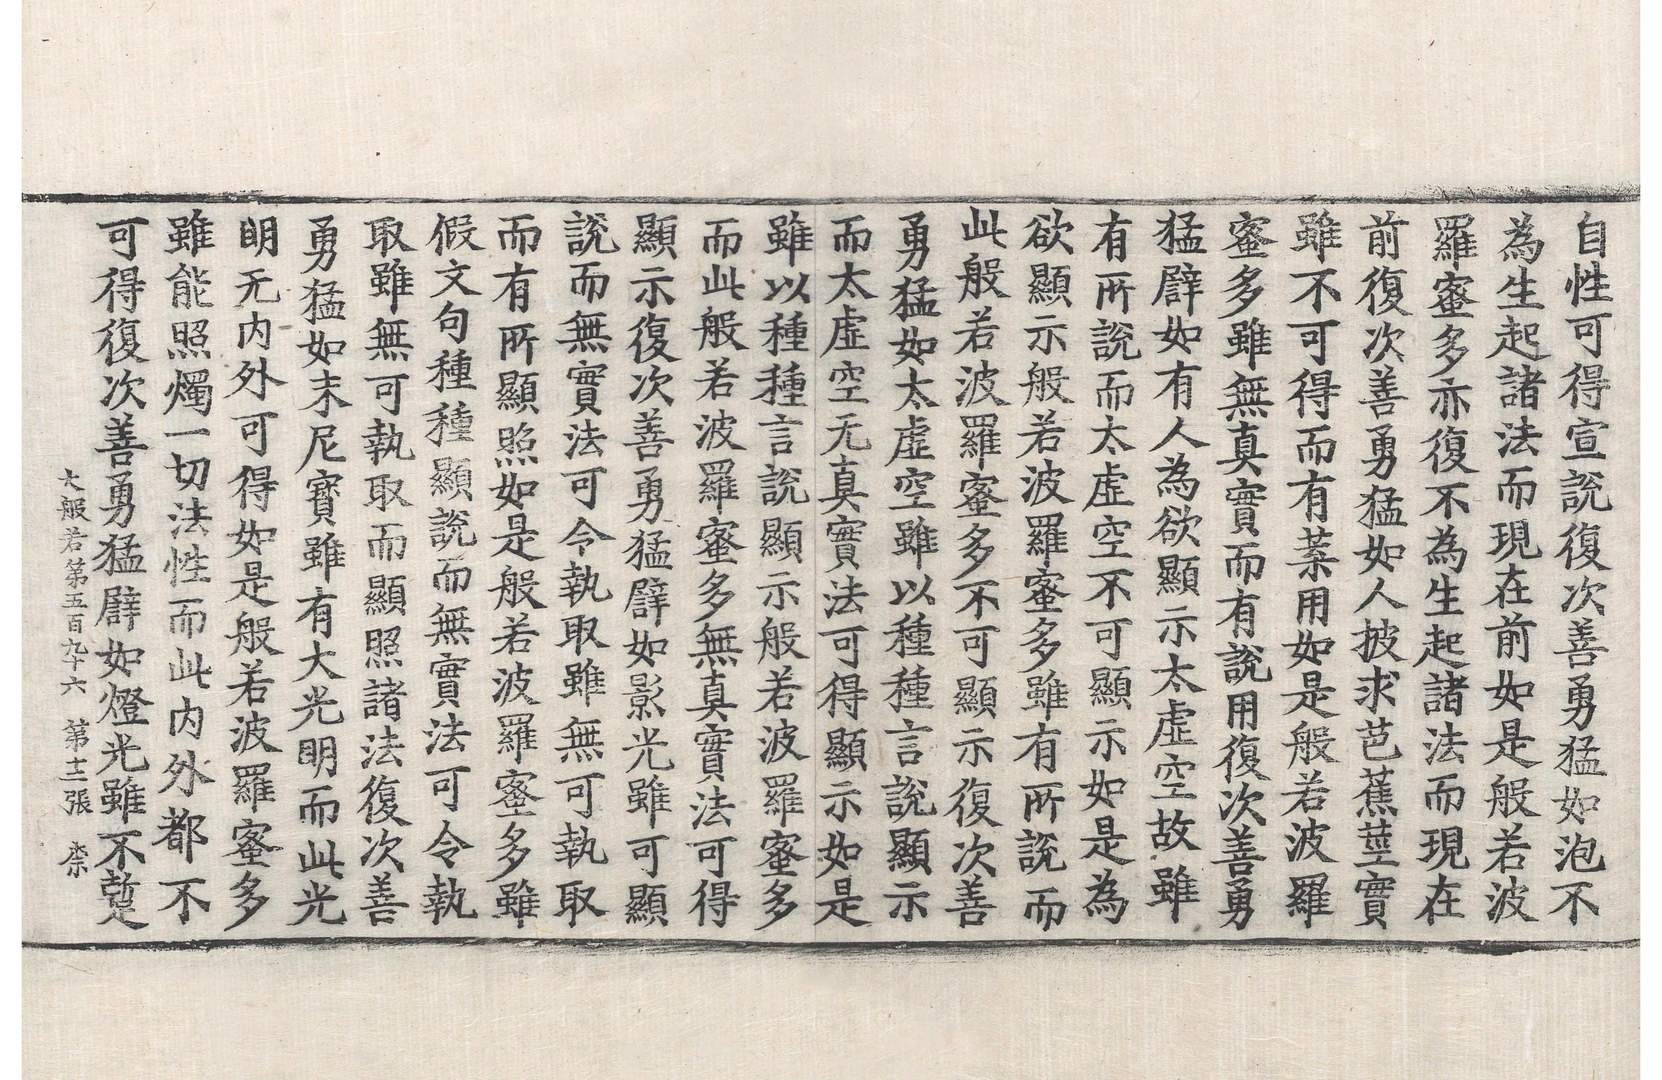 自性可得宣説復次善勇猛如泡不
為生起諸法而現在前如是般若波
羅蜜多亦復不為生起諸法而現在
前復次善勇猛如人披求芭蕉莖實
雖不可得而有葉用如是般若波羅
蜜多雖無真實而有説用復次善勇
猛譬如有人為欲顯示太虛空故雖
有所説而太虛空不可顯示如是為
欲顯示般若波羅蜜多雖有所説而
此般若波羅蜜多不可顯示復次善
勇猛如太虛空雖以種種言説顯示
而太虛空无真實法可得顯示如是
雖以種種言説顯示般若波羅蜜多
而此般若波羅蜜多無真實法可得
顯示復次善勇猛譬如影光雖可顯
説而無實法可令執取雖無可執取
而有所顯照如是般若波羅蜜多雖
假文句種種顯説而無實法可令執
取雖無可執取而顯照諸法復次善
勇猛如末尼寶雖有大光明而此光
明无内外可得如是般若波羅蜜多
雖能照燭一切法性而此内外都不
可得復次善勇猛譬如燈光雖不蹔
大般若第五百九十六 第十二張 柰